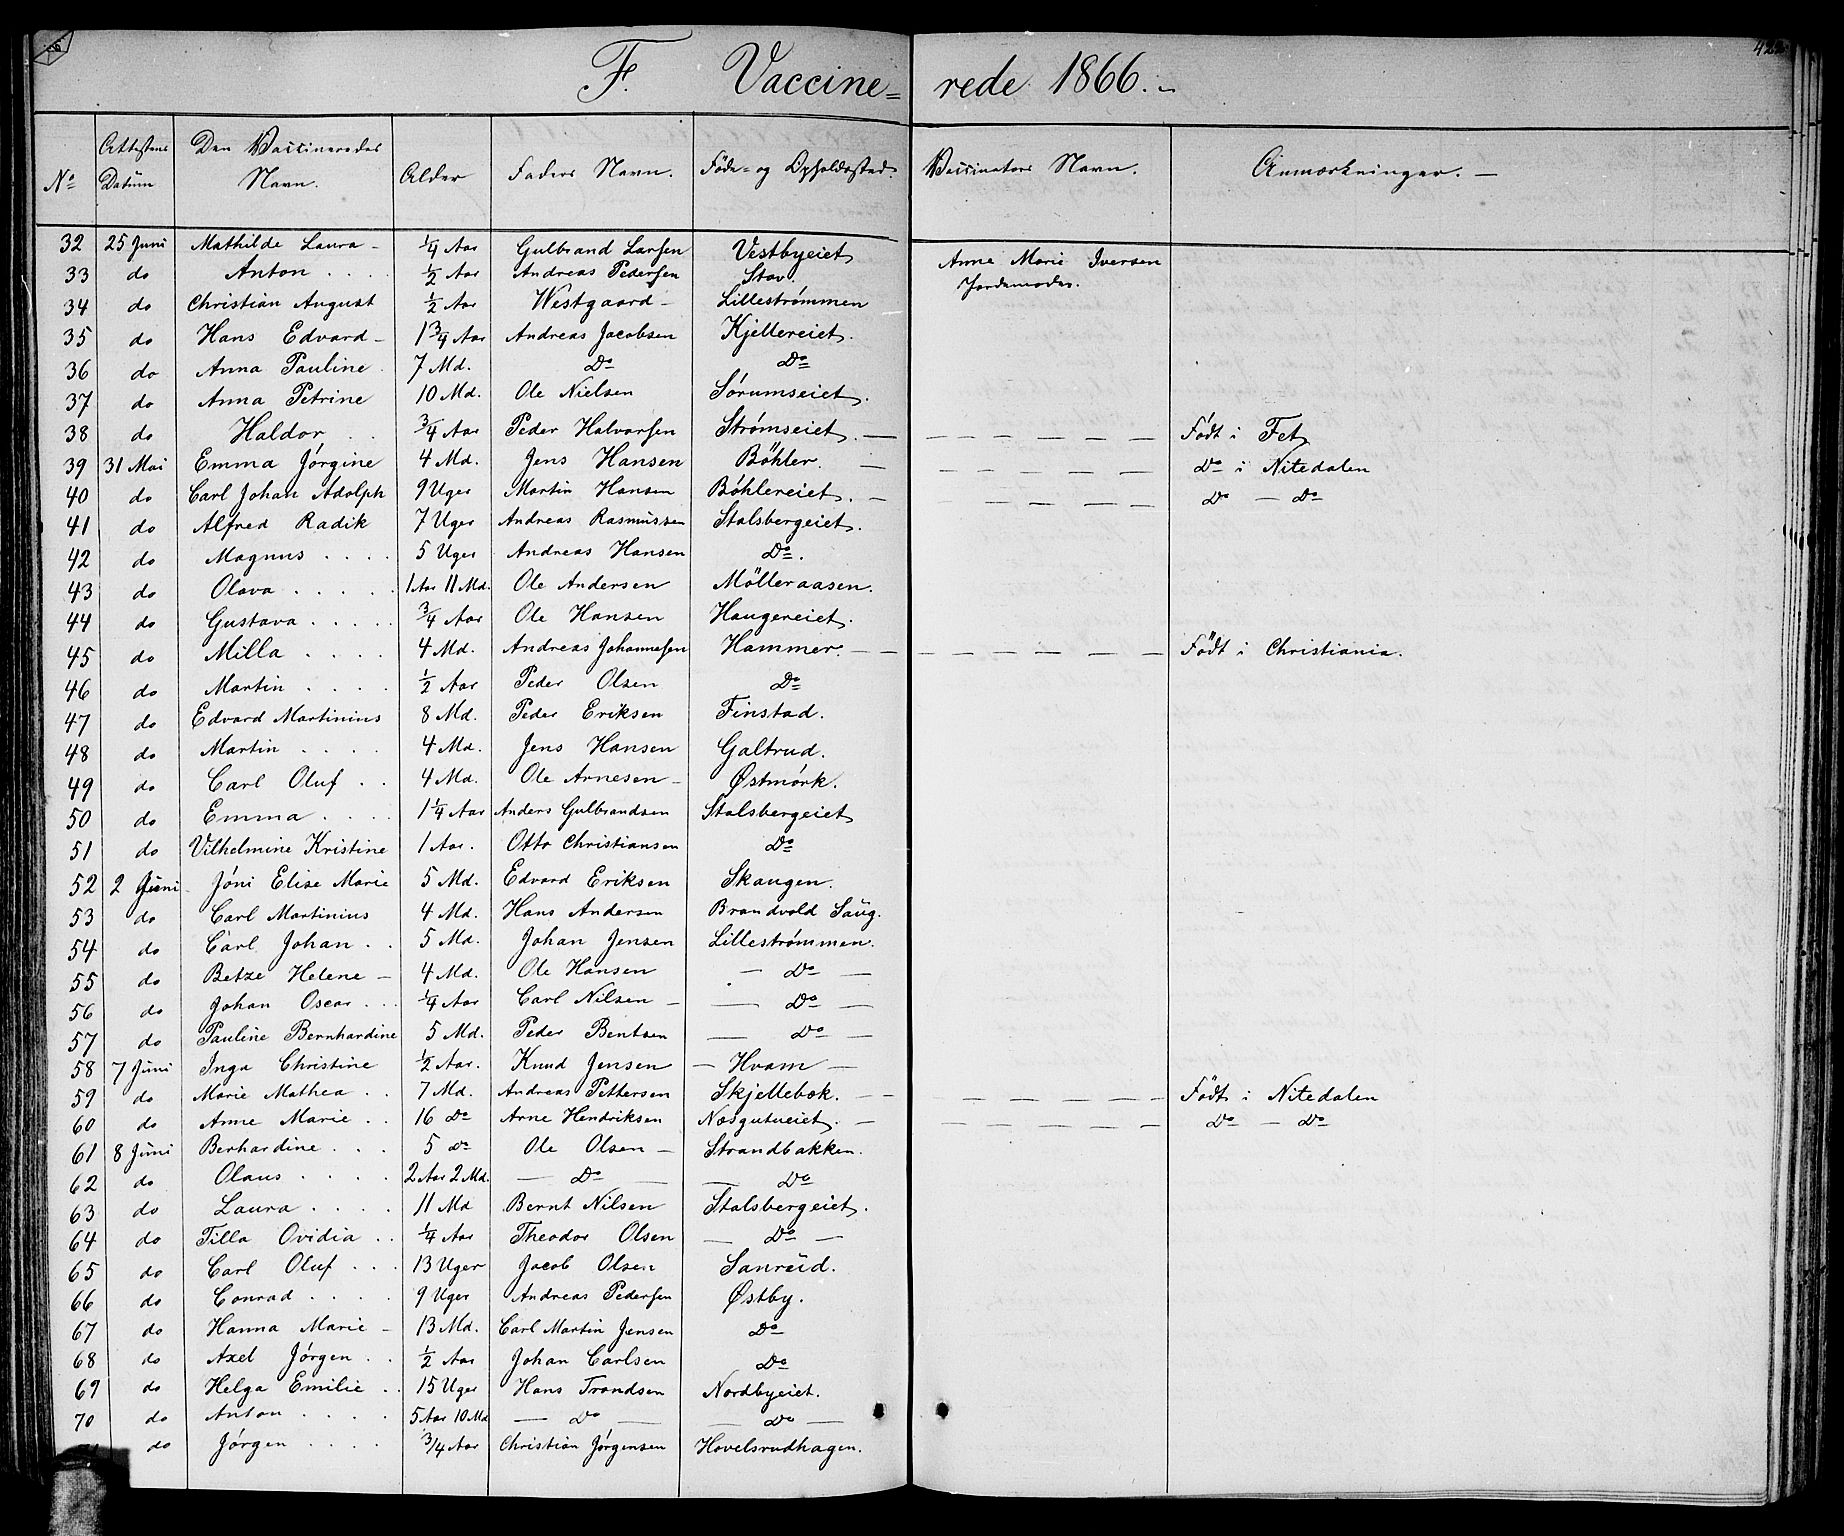 F. Vaccine= rede 1866.
No Attestens Datum Den Vaccineredes Navn. Alder Faders Navn. Føde- og Opholdssted. Vaccinators Navn. Anmærkninger. —
32 25 Juni Mathilde Laura - 1/4 Aar Gulbrand Larsen Vestbyeiet Anne Marie Iversen
33 do Anton . . . . 1/2 Aar Andreas Pedersen Stav. Jordemoder.
34 do Christian August 1/2 Aar Westgaard - Lillestrømmen
35 do Hans Edvard - 1 3/4 Aar Andreas Jacobsen Kjellereiet.
36 do Anna Pauline . 7 Md. Do Do
37 do Anna Petrine 10 Md. Ole Nielsen Sørumseiet.
38 do Haldor . . 3/4 Aar Peder Halvorsen Strømseiet. — — — — — — Født i Fet
39 31 Mai Emma Jørgine 4 Md. Jens Hansen Böhler. — — — — — — Do i Nitedalen
40 do Carl Johan Adolph 9 Uger Martin Hansen Böhlereiet. — — — — — Do — Do
41 do Alfred Radik 7 Uger Andreas Rasmussen Stalsbergeiet.
42 do Magnus . . . . 5 Uger Andreas Hansen Do.
43 do Olava . . . . . 1 Aar 11 Md. Ole Andersen Mölleraasen.
44 do Gustava . . . . . 3/4 Aar Ole Hansen Haugereiet.
45 do Milla . . . . 4 Md. Andreas Johannesen Hammer. — — — — — — — — Født i Christiania.
46 do Martin . . . . 1/2 Aar Peder Olsen Do
47 do Edvard Martinius 8 Md. Peder Eriksen Finstad.
48 do Martin . . . . 4 Md. Jens Hansen Galtrud.
49 do Carl Oluf . . 4 Md. Ole Arnesen - Østmörk.
50 do Emma . . . . 1 1/4 Aar Anders Gulbrandsen Stalsbergeiet
51 do Vilhelmine Kristine 1 Aar. Otto Christiansen Do
52 2 Juni - Jóni Elise Marie 5 Md. Edvard Eriksen Skaugen.
53 do Carl Martinius 4 Md. Hans Andersen Brandvold Saug.
54 do Carl Johan . . 5 Md. Johan Jensen Lillestrømmen.
55 do Betze Helene - 4 Md. Ole Hansen — Do —
56 do Johan Oscar . . . 1/4 Aar Carl Nilsen — — Do —
57 do Pauline Bernhardine 5 Md. Peder Bentsen — Do —
58 7 Juni Inga Christine 1/2 Aar. Knud Jensen — Hvam —
59 do Marie Mathea . . 7 Md. Andreas Pettersen Skjellebok. — — — — — — — Født i Nitedalen
60 do Anne Marie . . 16 Do Arne Hendriksen Næsgutueiet. — — — — — — Do — Do
61 8 Juni Berhardine . . . 5 Do Ole Olsen — Strandbakken.
62 do Olaus . . . . 2 Aar 2 Md. — Do — — Do
63 do Laura . . . . 11 Md Bernt Nilsen Stalsbergeiet.
64 do Tilla Ovidia . . 1/4 Aar Theodor Olsen — Do —
65 do Carl Oluf . . . 13 Uger Jacob Olsen Sanrud.
66 do Conrad . . . . 9 Uger Andreas Pedersen Østby.
67 do Hanna Marie - 13 Md. Carl Martin Jensen Do
68 do Axel Jørgen . . 1/2 Aar Johan Carlsen Do
69 do Helga Emilie . . 15 Uger Hans Trondsen Nordbyeiet.
70 do Anton . . . . 5 Aar 10 Md — Do — — Do —
do Jørgen . . . . 3/4 Aar Christian Jørgensen Hovelsrudhagen.